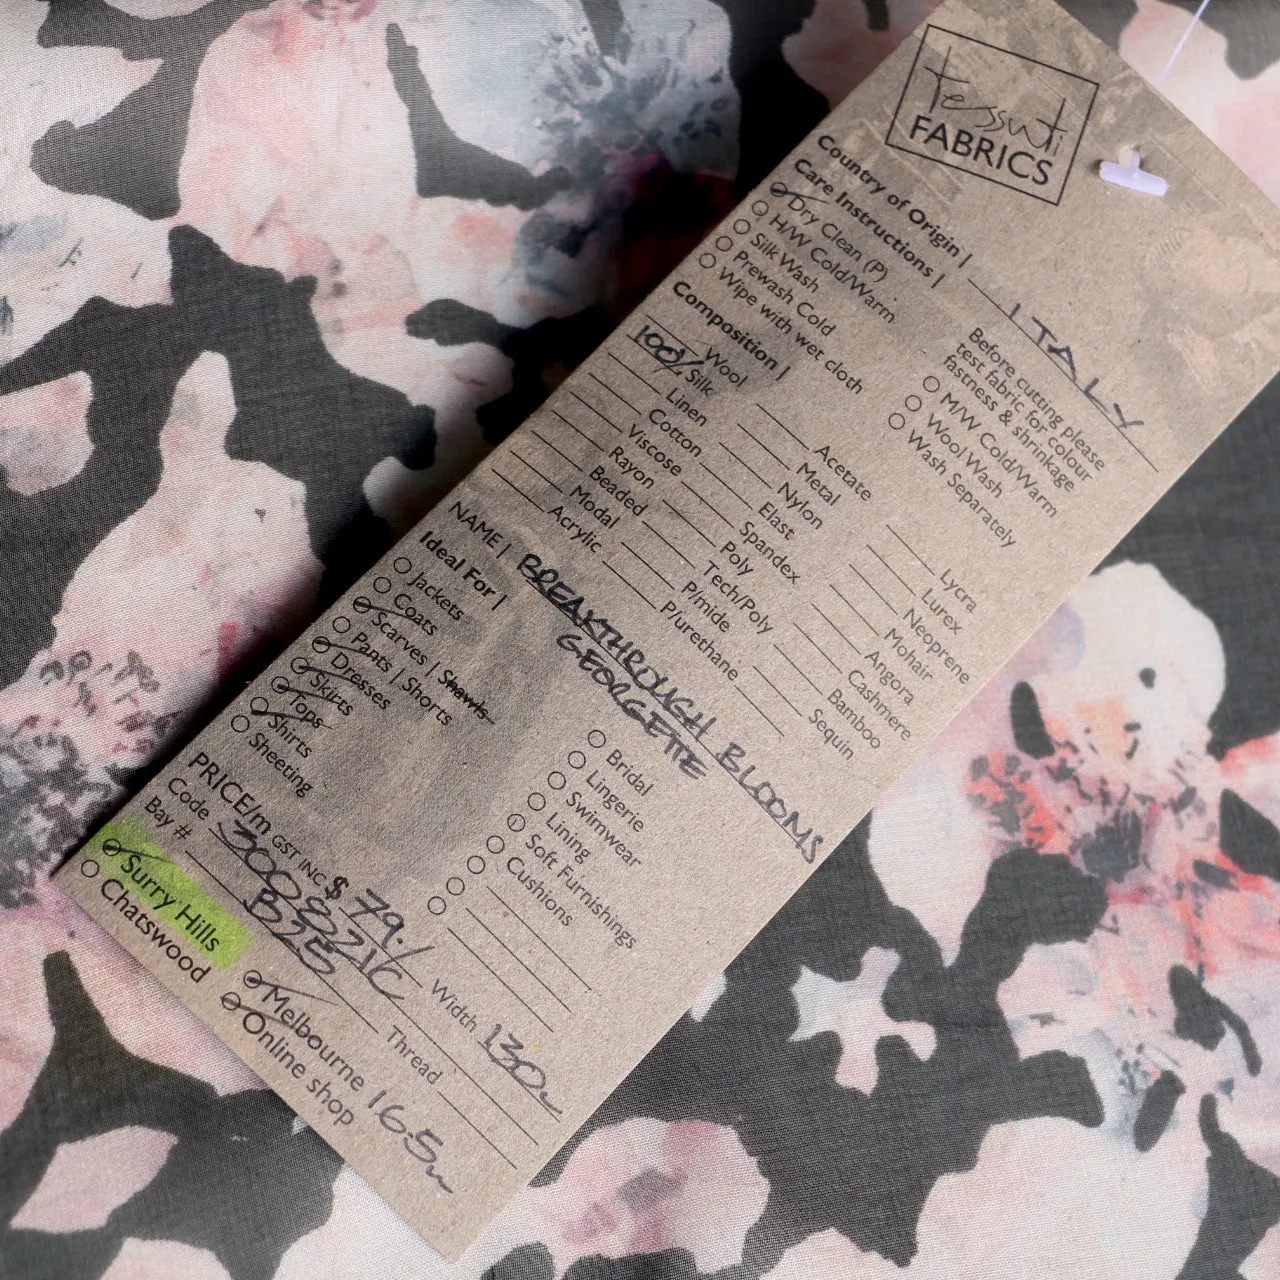 tessuti
FABRICS
Country of Origin | ITALY
Care Instructions |
Dry Clean (P)
H/W Cold/Warm
Silk Wash
Prewash Cold
Wipe with wet cloth
Before cutting please
test fabric for colour
fastness & shrinkage
M/W Cold/Warm
Wool Wash
Wash Separately
Composition |
Wool
100% Silk
Linen
Cotton
Viscose
Rayon
Beaded
Modal
Acrylic
Acetate
Metal
Nylon
Elast
Spandex
Poly
Tech/Poly
P/mide
P/urethane
Lycra
Lurex
Neoprene
Mohair
Angora
Cashmere
Bamboo
Sequin
NAME | BREAKTHROUGH BLOOMS
GEORGETTE
Ideal For |
Jackets
Coats
Scarves | Shawls
Pants | Shorts
Dresses
Skirts
Tops
Shirts
Sheeting
Bridal
Lingerie
Swimwear
Lining
Soft Furnishings
Cushions
PRICE/m GST INC $ 79./ Width 130
Code 300821C Thread
Bay # B25
Surry Hills
Chatswood
Melbourne 16.5
Online shop